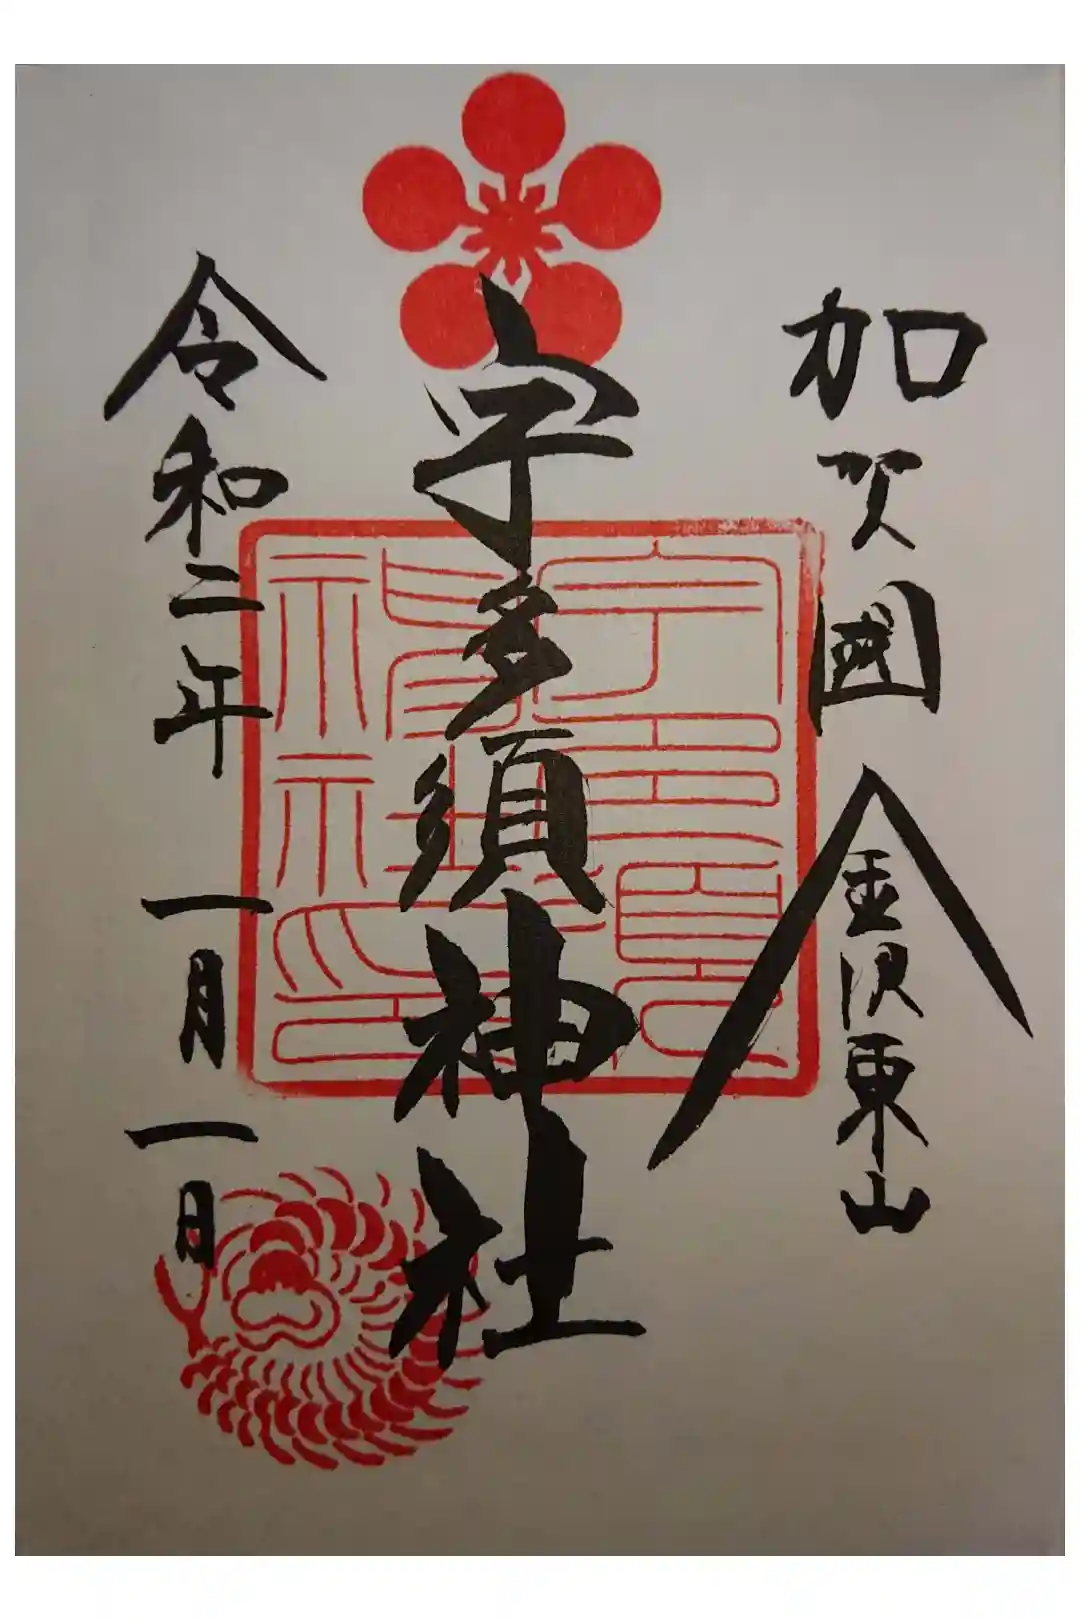 加賀國 金沢東山
宇多須神社
令和二年 一月一日
宇多須神社之印